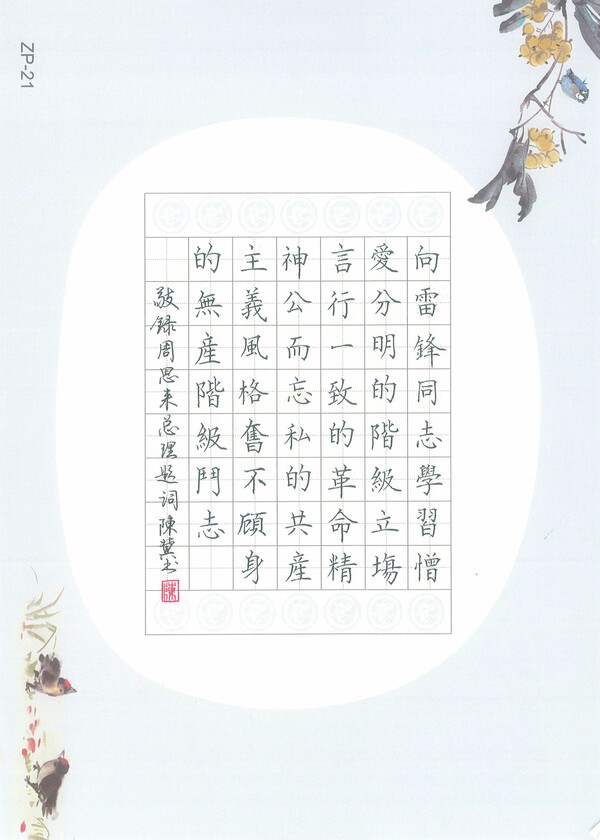 ZP-21
向雷鋒同志學習憎
愛分明的階級立塲
言行一致的革命精
神公而忘私的共産
主義風格奮不顧身
的無産階級鬥志
敬録周恩来总理题词陳书